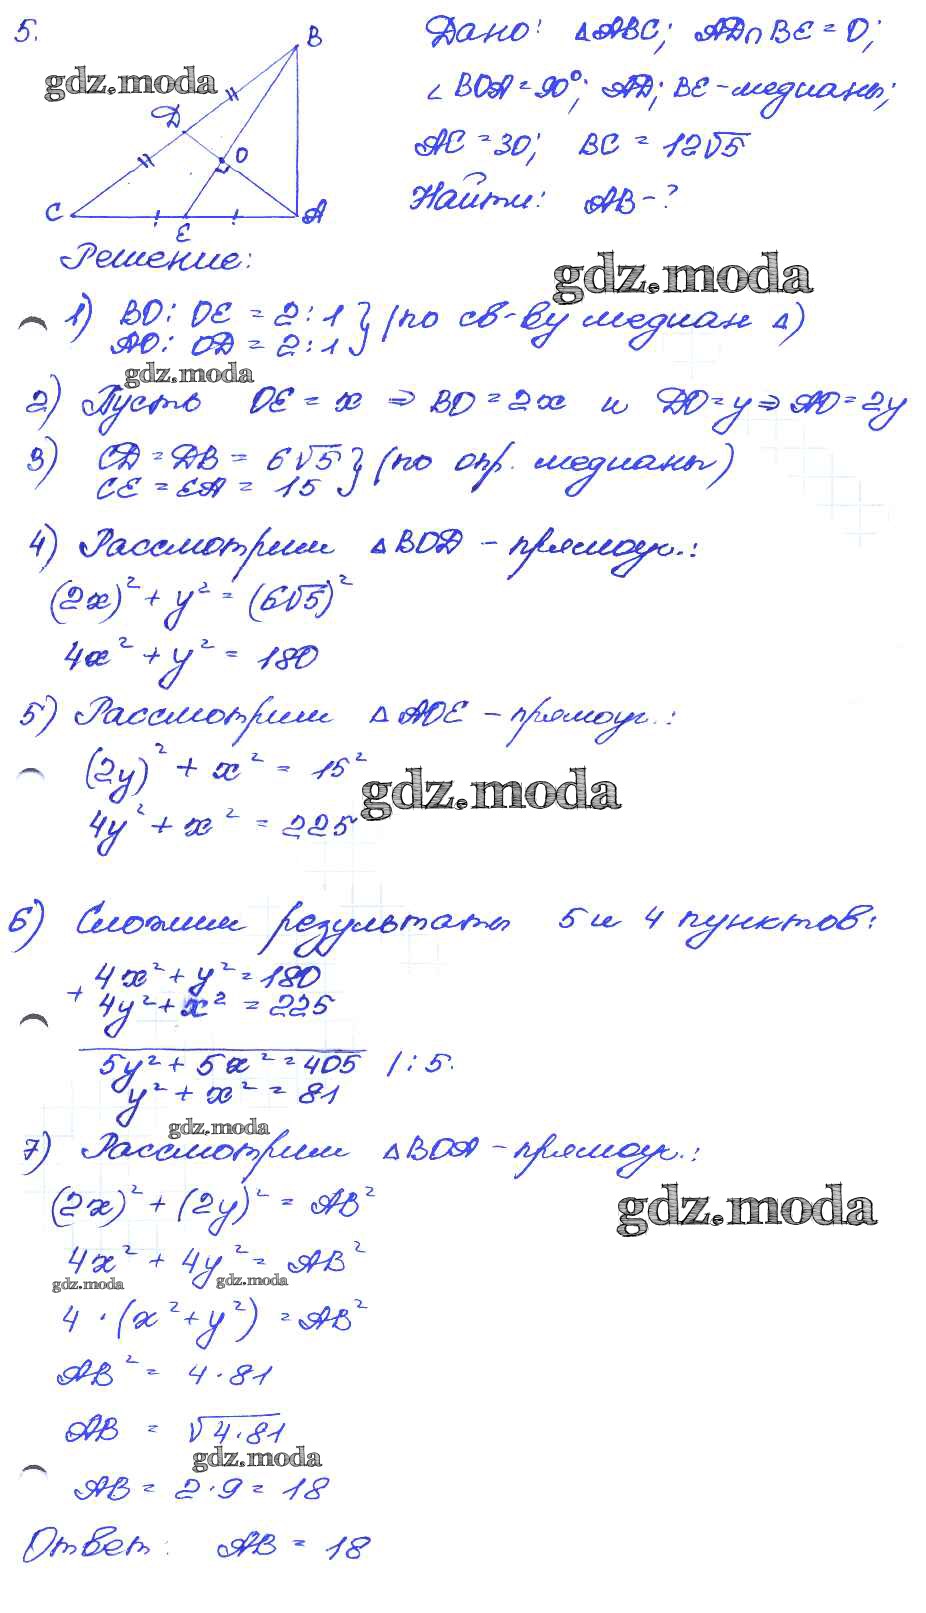 5.
B
D
O
C
E
A
gdz.moda
Дано: △ABC; AD∩BE=O;
∠BOA=90°; AD; BE-медианы;
AC=30; BC=12√5
Найти: AB-?
Решение:
gdz.moda
1) BO:OE=2:1 } (по св-ву медиан △)
AO:OD=2:1
gdz.moda
2) Пусть OE=x ⇒ BO=2x и DO=y ⇒ AO=2y
3) CD=DB=6√5 } (по опр. медианы)
CE=EA=15
4) Рассмотрим △BOD-прямоуг.:
(2x)²+y²=(6√5)²
4x²+y²=180
5) Рассмотрим △AOE-прямоуг.:
(2y)²+x²=15²
gdz.moda
4y²+x²=225
6) Сложим результаты 5 и 4 пунктов:
+ 4x²+y²=180
4y²+x²=225
5y²+5x²=405 /:5.
y²+x²=81
gdz.moda
7) Рассмотрим △BOA-прямоуг.:
(2x)²+(2y)²=AB²
gdz.moda
4x²+4y²=AB²
gdz.moda gdz.moda
4·(x²+y²)=AB²
AB²=4·81
AB=√4·81
gdz.moda
AB=2·9=18
Ответ: AB=18